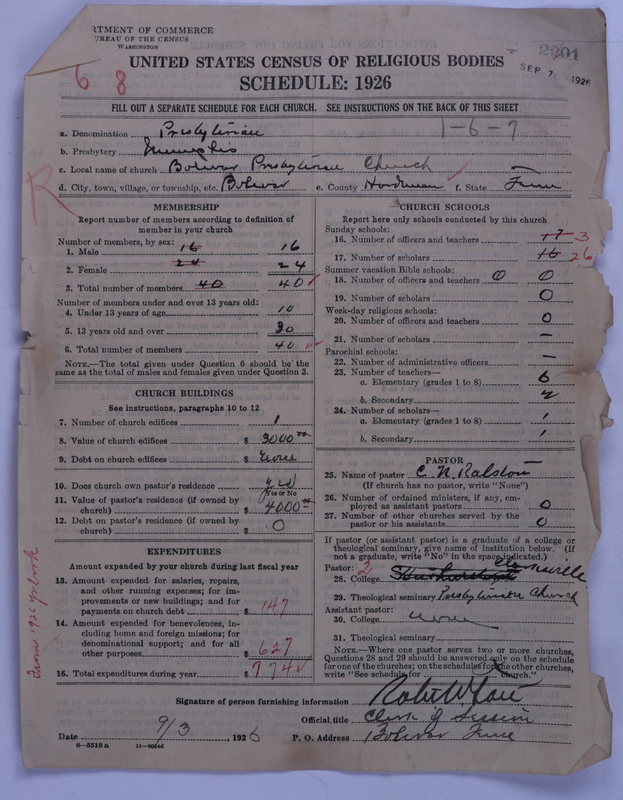 RTMENT OF COMMERCE
UREAU OF THE CENSUS
WASHINGTON
2901
SEP 7 1926
UNITED STATES CENSUS OF RELIGIOUS BODIES
6 8
SCHEDULE: 1926
FILL OUT A SEPARATE SCHEDULE FOR EACH CHURCH. SEE INSTRUCTIONS ON THE BACK OF THIS SHEET
a. Denomination Presbyterian 1-6-7
b. Presbytery Memphis
c. Local name of church Bolivar Presbyterian Church
d. City, town, village, or township, etc. Bolivar e. County Hardeman f. State Tenn
R
MEMBERSHIP
Report number of members according to definition of
member in your church
Number of members, by sex:
1. Male 16 16
2. Female 24 24
3. Total number of members 40 40
Number of members under and over 13 years old:
4. Under 13 years of age 10
5. 13 years old and over 30
6. Total number of members 40
NOTE.—The total given under Question 6 should be the
same as the total of males and females given under Question 3.
CHURCH BUILDINGS
See instructions, paragraphs 10 to 12
7. Number of church edifices 1
8. Value of church edifices $ 3000 00
9. Debt on church edifices $ none
10. Does church own pastor's residence yes
Yes or No
11. Value of pastor's residence (if owned by
church) $ 4000 00
12. Debt on pastor's residence (if owned by
church) $ 0
EXPENDITURES
Amount expended by your church during last fiscal year
13. Amount expended for salaries, repairs,
and other running expenses; for im-
provements or new buildings; and for
payments on church debt $ 147
14. Amount expended for benevolences, in-
cluding home and foreign missions; for
denominational support; and for all
other purposes $ 627
15. Total expenditures during year $ 774
From 1926 yrbook
CHURCH SCHOOLS
Report here only schools conducted by this church
Sunday schools:
16. Number of officers and teachers 3
17. Number of scholars 16 26
Summer vacation Bible schools:
18. Number of officers and teachers 0 0
19. Number of scholars 0
Week-day religious schools:
20. Number of officers and teachers 0
21. Number of scholars —
Parochial schools:
22. Number of administrative officers —
23. Number of teachers—
a. Elementary (grades 1 to 8)
b. Secondary
24. Number of scholars—
a. Elementary (grades 1 to 8)
b. Secondary
PASTOR
25. Name of pastor C. N. Ralston
(If church has no pastor, write "None")
26. Number of ordained ministers, if any, em-
ployed as assistant pastors 0
27. Number of other churches served by the
pastor or his assistants 0
If pastor (or assistant pastor) is a graduate of a college or
theological seminary, give name of institution below. (If
not a graduate, write "No" in the space indicated.)
Pastor: 2
28. College
29. Theological seminary Presbyterian Church
Assistant pastor:
30. College none
31. Theological seminary
NOTE.—Where one pastor serves two or more churches,
Questions 28 and 29 should be answered only on the schedule
for one of the churches; on the schedules for the other churches,
write "See schedule for church."
Signature of person furnishing information
Official title Clerk of Session
Date 9/3, 1926 P. O. Address Bolivar Tenn
8—5518a 11—9056d